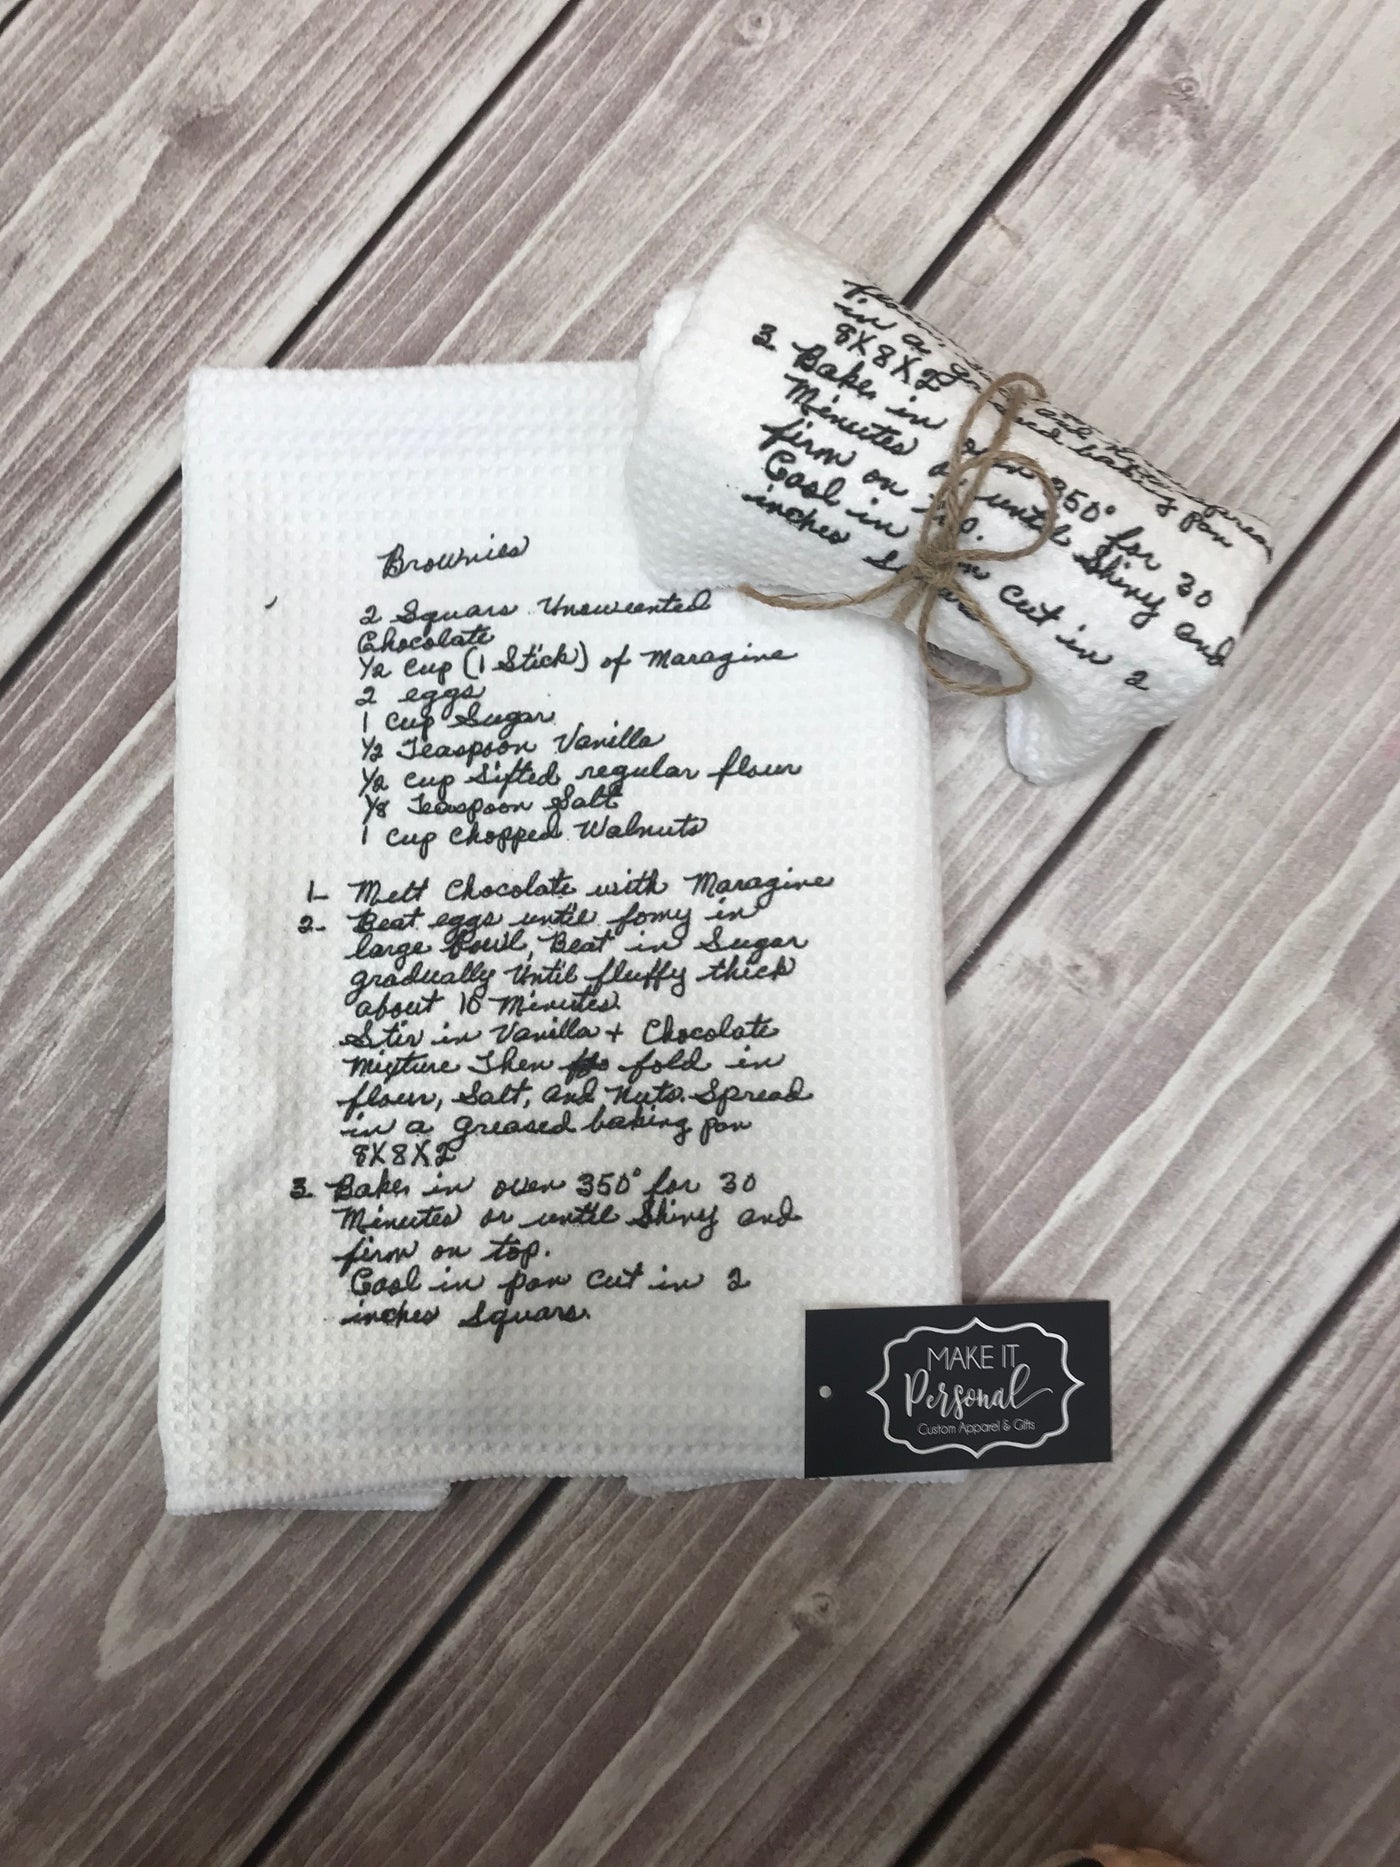 Brownies
2 Squars Unsweented
Chocolate
1/2 Cup (1 Stick) of Maragine
2 eggs
1 Cup Sugar
1/2 Teaspoon Vanilla
1/2 cup Sifted regular flour
1/8 Teaspoon Salt
1 Cup Chopped Walnuts
1- Melt Chocolate with Maragine
2- Beat eggs until fomy in
large Bowl, Beat in Sugar
gradually Until fluffy thick
about 10 Minutes.
Stir in Vanilla + Chocolate
Mixture Then fold in
flour, Salt, and Nuts. Spread
in a greased baking pan
8X8X2
3 Bake in oven 350° for 30
Minutes or until Shiny and
firm on top.
Cool in pan cut in 2
inches Squars.
in a
8X8X2
and
baking pan
3 Bake in oven 350° for 30
Minutes until Shiny and
firm on
Cool in cut in 2
inches
MAKE IT
Personal
Custom Apparel & Gifts